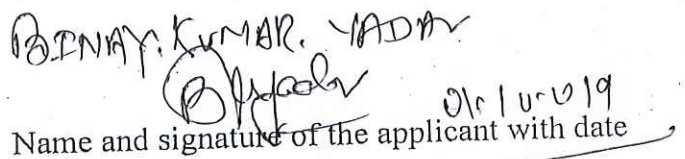 BINAY. KUMAR. YADAV
Name and signature of the applicant with date